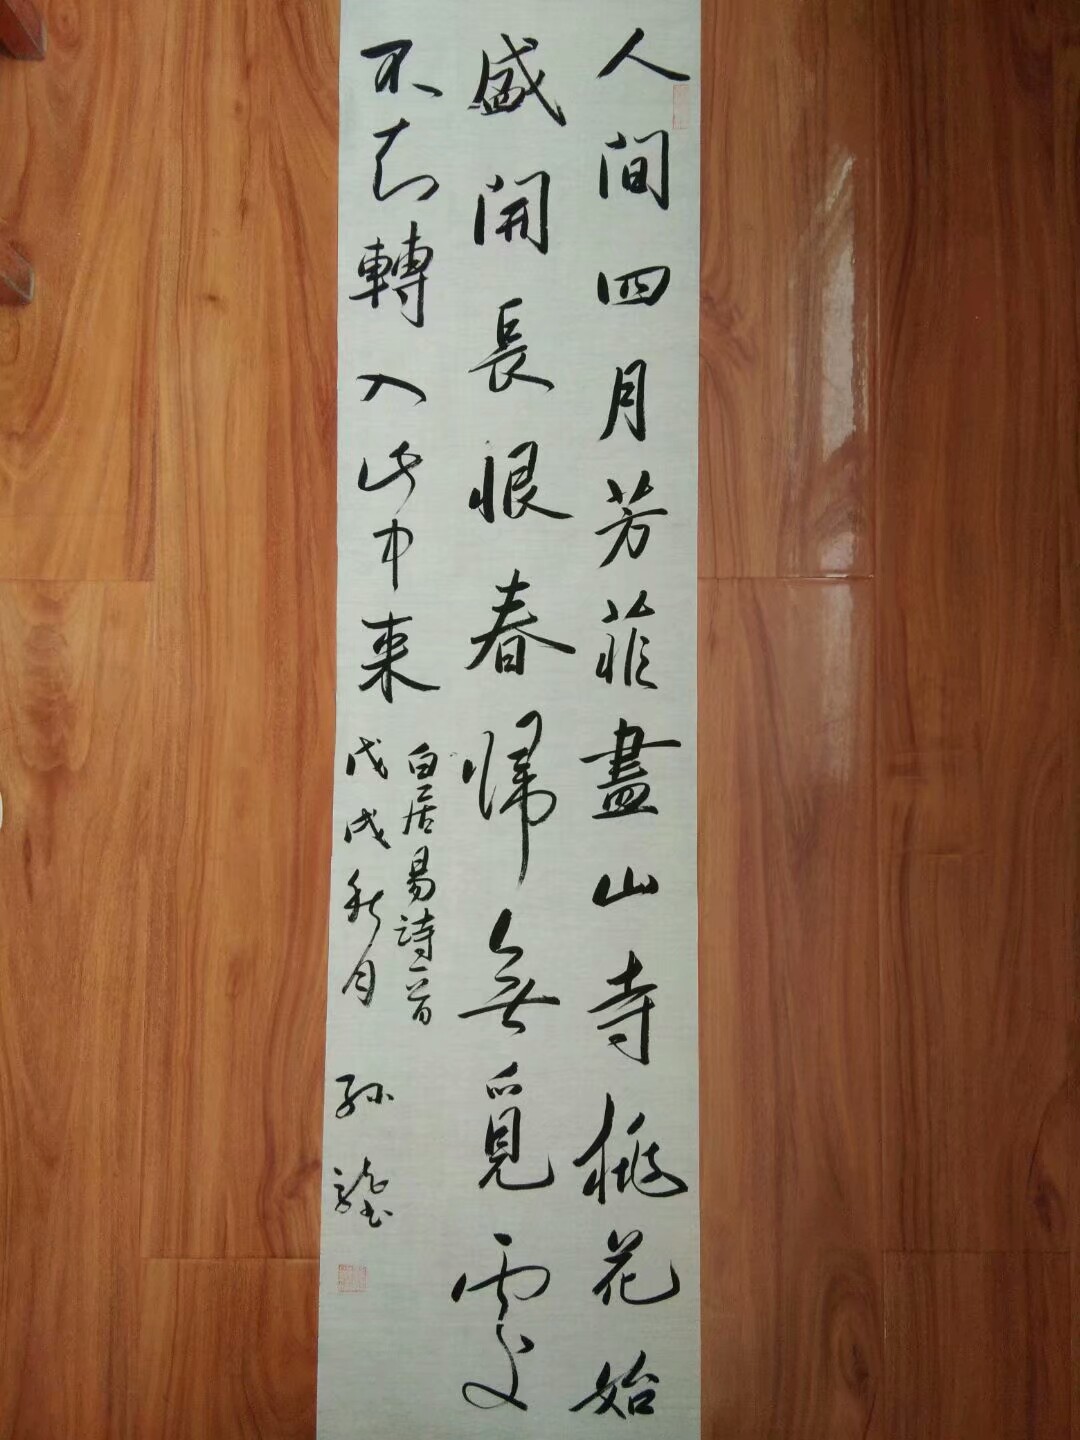 人间四月芳菲盡山寺桃花始
盛開長恨春歸無覓處
不知轉入此中来
白居易詩一首
戊戌秋月
孫龍书